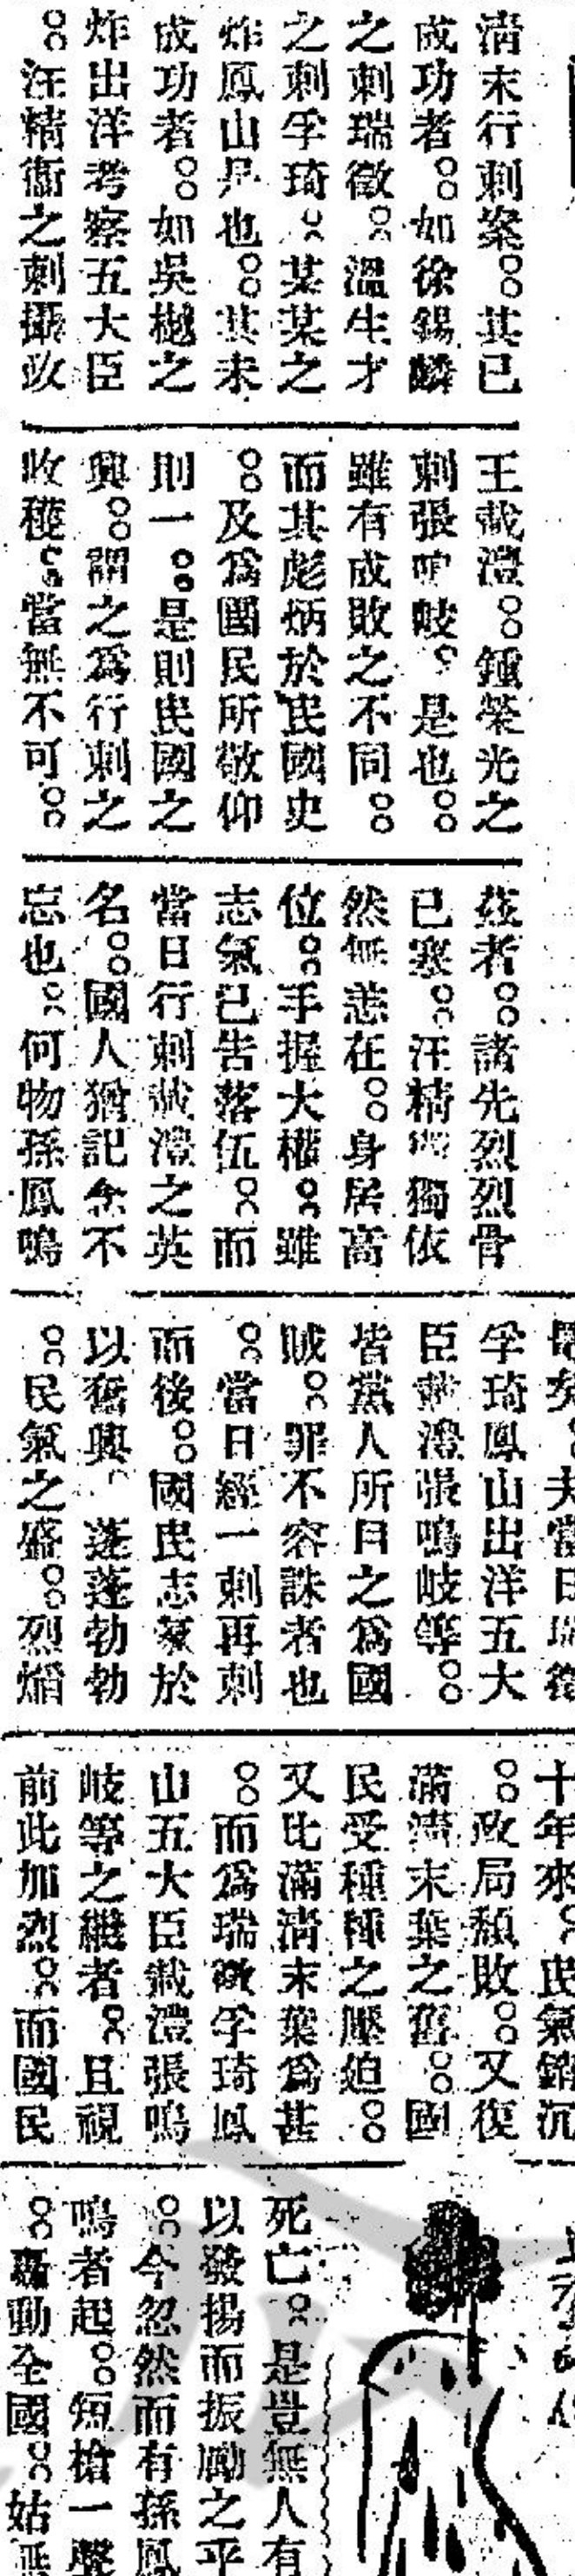 清末行刺案。其已
成功者。如徐錫麟
之刺瑞徵。溫生才
之刺孚琦。某某之
炸鳳山是也。其未
成功者。如吳樾之
炸出洋考察五大臣
。汪精衞之刺攝政
王載澧。鍾榮光之
刺張鳴岐。是也。
雖有成敗之不同。
而其彪炳於民國史
。及爲國民所敬仰
則一。是則民國之
興。謂之爲行刺之
收穫。當無不可。
茲者。諸先烈烈骨
已寒。汪精衞獨依
然無恙在。身居高
位。手握大權。雖
志氣已告落伍。而
當日行刺載澧之英
名。國人猶記念不
忘也。何物孫鳳鳴
夫當日瑞徵
孚琦鳳山出洋五大
臣載澧張鳴岐等。
皆黨人所目之爲國
賊。罪不容誅者也
。當日經一刺再刺
而後。國民志氣於
以奮興。蓬蓬勃勃
。民氣之盛。烈燄
十年來。民氣銷沉
。政局頹敗。又復
滿清末葉之舊。國
民受種種之壓迫。
又比滿清末葉爲甚
。而爲瑞徵孚琦鳳
山五大臣載澧張鳴
岐等之繼者。且視
前此加烈。而國民
死亡。是豈無人有
以發揚而振勵之乎
。今忽然而有孫鳳
鳴者起。短槍一聲
。轟動全國。姑無